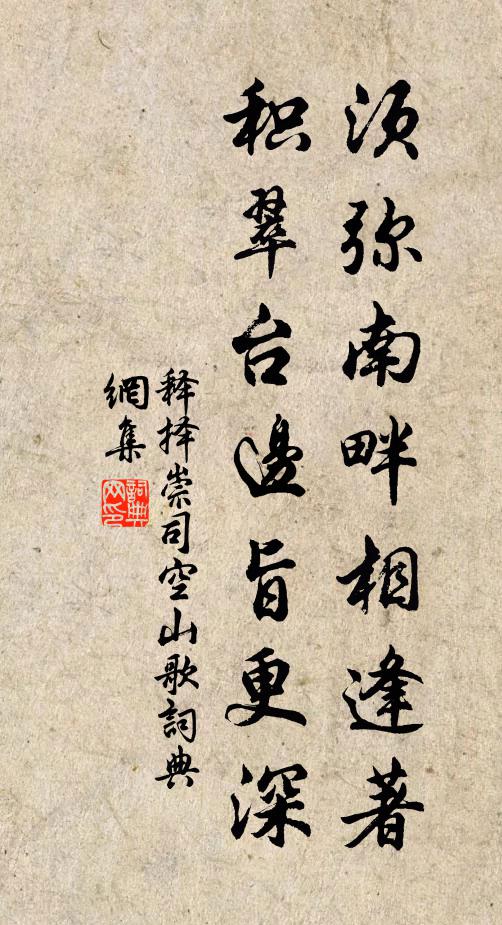 须弥南畔相逢著
积翠台邊旨更深
释择崇司空山歌詞典
網集
詞典网印